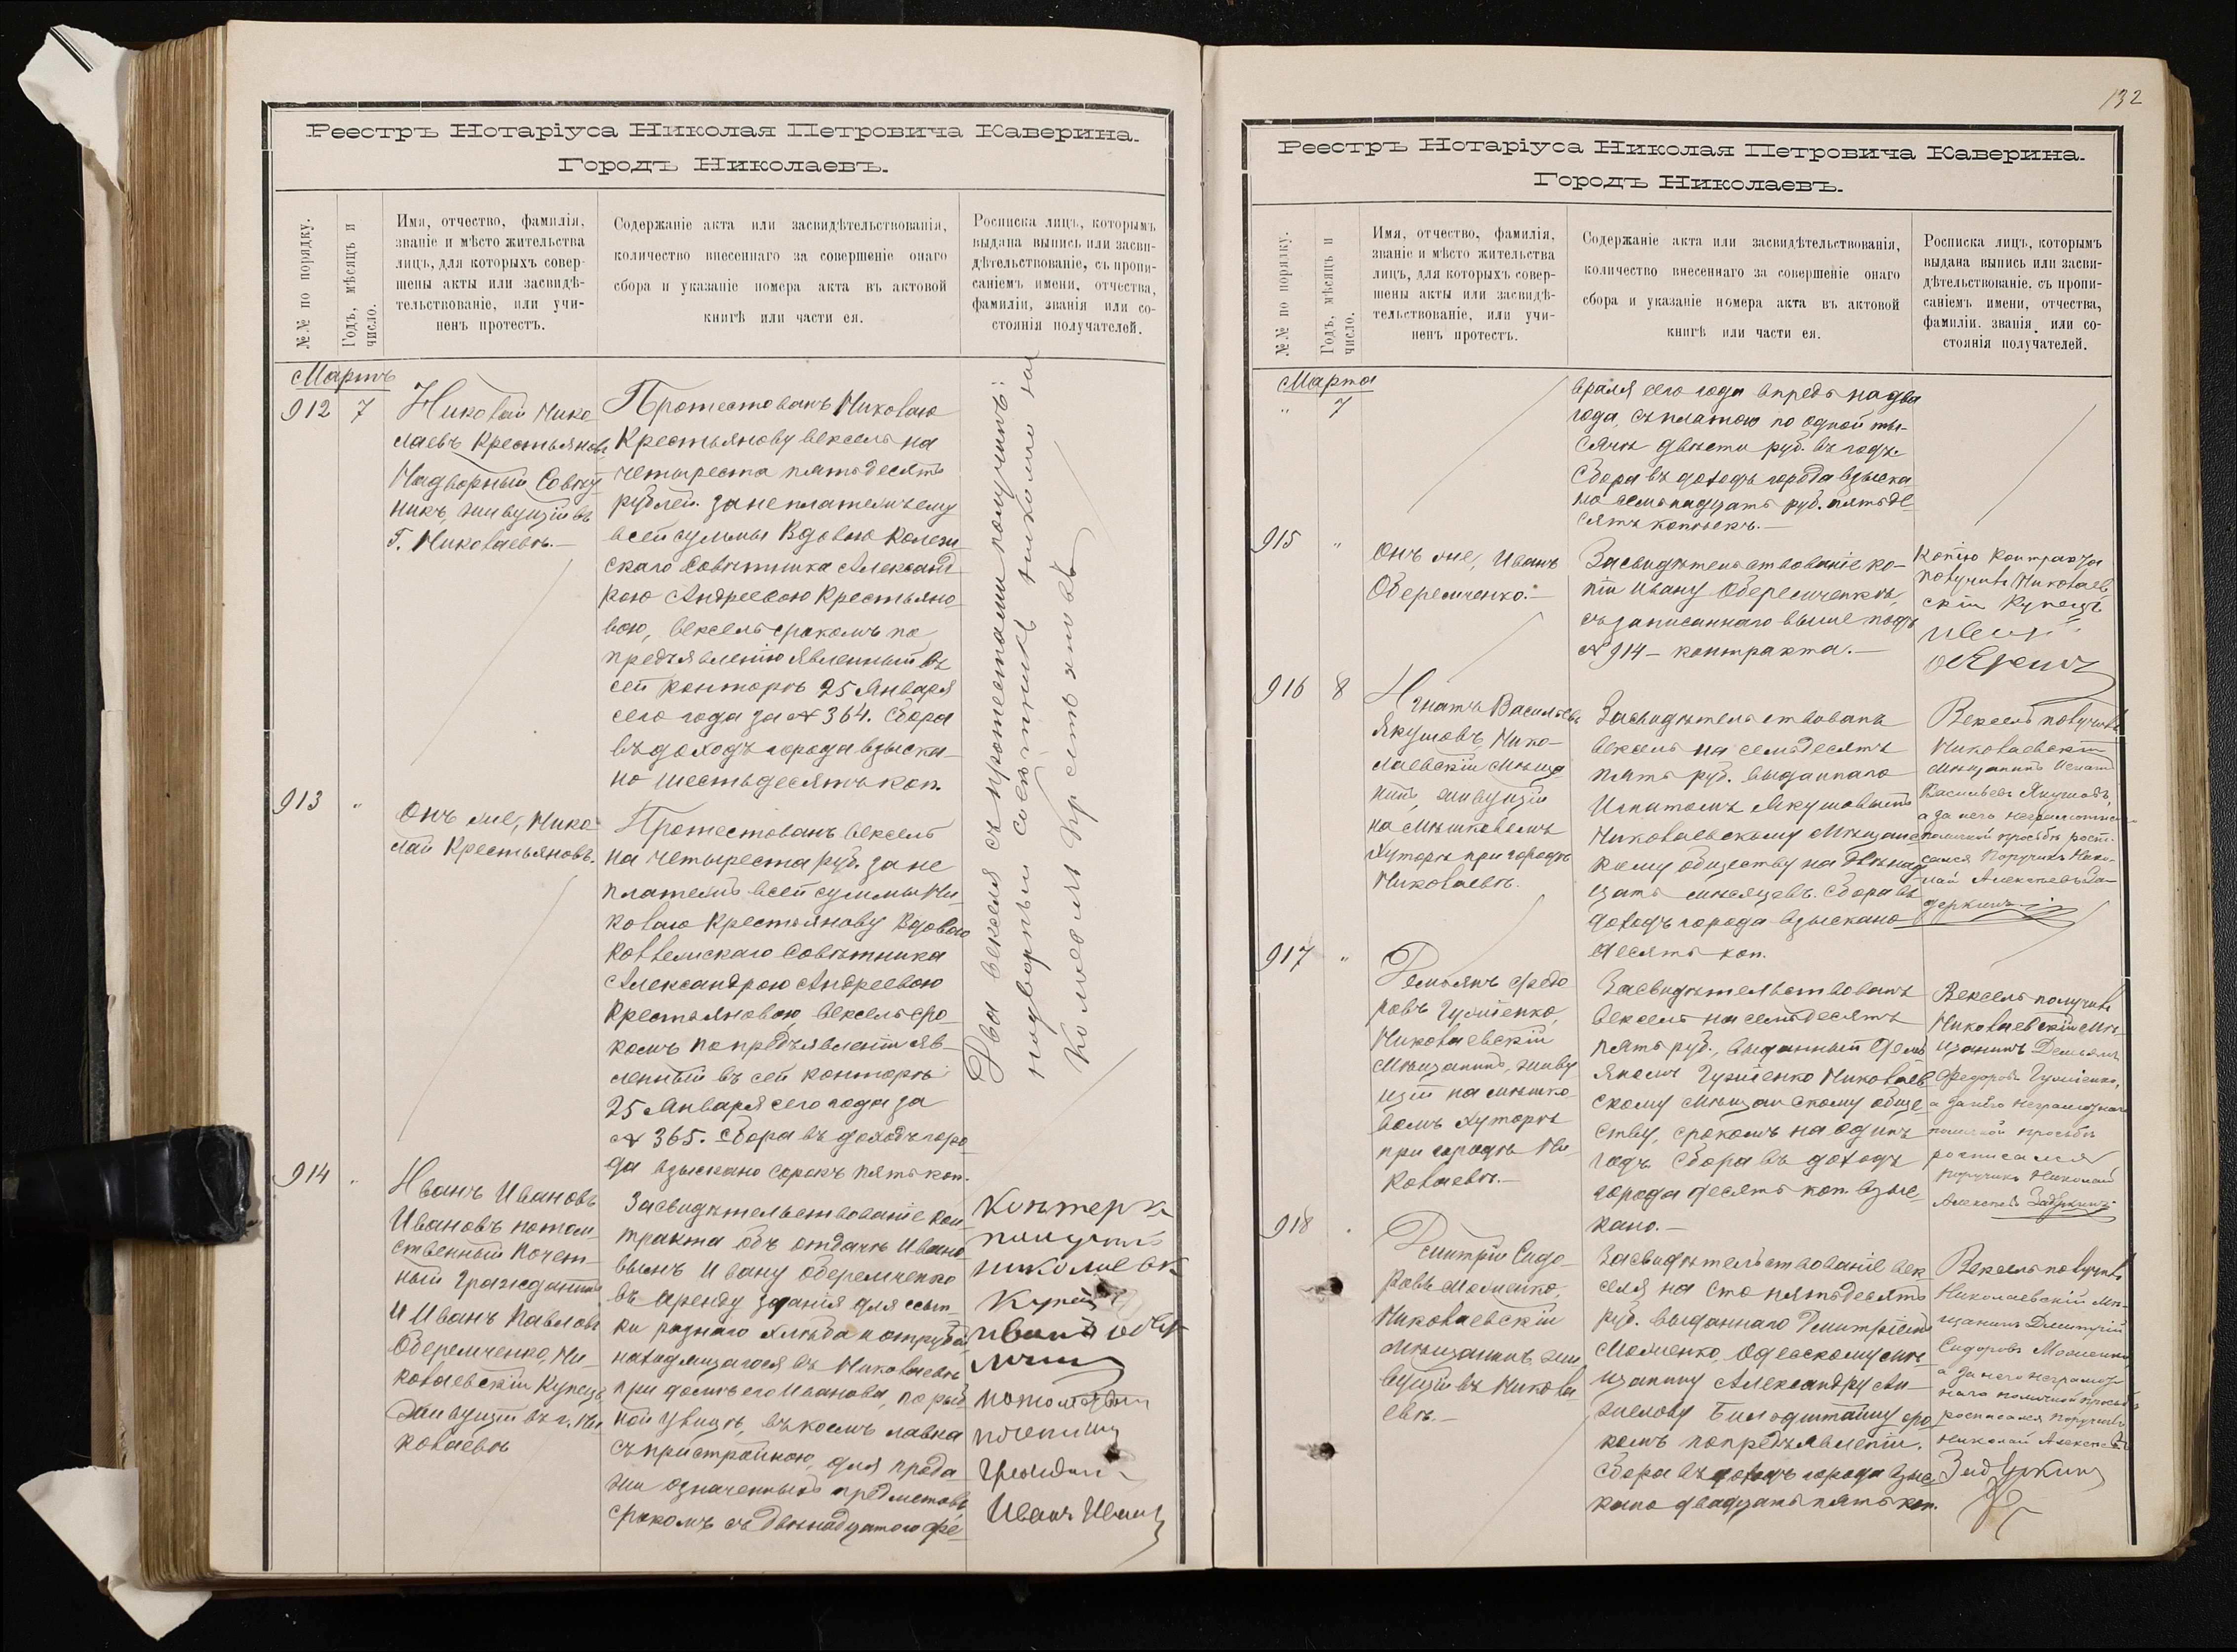 Реестръ Нотаріуса Николая Петровича Каверина.
Городъ Николаевъ.
№№ по порядку.
Годъ, мѣсяцъ и
число.
Имя, отчество, фамилія,
званіе и мѣсто жительства
лицъ, для которыхъ совер-
шены акты или засвидѣ-
тельствованіе, или учи-
ненъ протестъ.
Содержаніе акта или засвидѣтельствованія,
количество внесеннаго за совершеніе онаго
сбора и указаніе номера акта въ актовой
книгѣ или части ея.
Росписка лицъ, которымъ
выдана выпись или засви-
дѣтельствованіе, съ пропи-
саніемъ имени, отчества,
фамиліи, званія или со-
стоянія получателей.
Мартъ
912 7
Николай Нико-
лаевъ Крестьяновъ
Надворный Совѣт-
никъ, живущій въ
Г. Николаевѣ.—
Протестованъ Николаю
Крестьянову вексель на
четыреста пятьдесятъ
рублей. за неплатежъ ему
всей суммы Вдовою Колеж-
скаго Совѣтника Александ-
рою Андреевою Крестьяно-
вою, вексель срокомъ по
предъявленію явленный въ
сей конторѣ 25 Января
сего года за № 364. Сбора
въ доходъ города взыска-
но шестьдесятъ коп.
Два векселя съ протестами получилъ:
надворный совѣтникъ Николай
Николаевъ Крестьяновъ
913 "
Онъ же, Нико-
лай Крестьяновъ.
Протестованъ вексель
на четыреста руб. за не
платежъ всей суммы Ни-
колаю Крестьянову Вдовою
Коллежскаго Совѣтника
Александрою Андреевою
Крестьяновою, вексель сро-
комъ по предъявленіи яв-
ленный въ сей конторѣ
25 Января сего года за
№ 365. Сбора въ доходъ горо
да взыскано сорокъ пять коп.
914 "
Иванъ Ивановъ
Ивановъ потом-
ственный Почет-
ный Гражданинъ
и Иванъ Павловъ
Оберемченко, Ни-
колаевскій Купецъ,
живущій въ г. Ни
колаевѣ
Засвидѣтельствованіе кон-
тракта объ отдачѣ Ивано-
вымъ Ивану Оберемченко
въ аренду зданія для ссып-
ки разнаго хлѣба и отрубей,
находящагося въ Николаевѣ
при домѣ его Иванова, по рыб
ной улицѣ, въ коемъ лавка
съ пристройкою, для прода-
жи означенныхъ предметовъ
срокомъ съ двѣнадцатого фе-
получилъ
Купец
Иванъ
Иванъ Ивановъ
132
Реестръ Нотаріуса Николая Петровича Каверина.
Городъ Николаевъ.
№№ по порядку.
Годъ, мѣсяцъ и
число.
Имя, отчество, фамилія,
званіе и мѣсто жительства
лицъ, для которыхъ совер-
шены акты или засвидѣ-
тельствованіе, или учи-
ненъ протестъ.
Содержаніе акта или засвидѣтельствованія,
количество внесеннаго за совершеніе онаго
сбора и указаніе номера акта въ актовой
книгѣ или части ея.
Росписка лицъ, которымъ
выдана выпись или засви-
дѣтельствованіе, съ пропи-
саніемъ имени, отчества,
фамиліи, званія или со-
стоянія получателей.
Марта
" 7
враля сего года впредь на два
года, съ платою по одной ты-
сячѣ двѣсти руб. въ годъ.
Сбора въ доходъ города взыска-
но восемьнадцать руб. пятьде
сятъ копѣекъ.—
915 "
Онъ же, Иванъ
Оберемченко.—
Засвидѣтельствованіе ко-
піи Ивану Оберемченко,
съ записаннаго выше подъ
№ 914 — контракта.—
Копію контракта
получилъ Николаев
скій Купецъ
916 8
Игнатъ Васильевъ
Якушовъ, Нико-
лаевскій мѣща
нинъ, живущій
на Мѣшковомъ
хуторѣ при городѣ
Николаевѣ.
Засвидѣтельствованъ
вексель на семьдесятъ
пять руб. выданнаго
Игнатомъ Якушовымъ
Николаевскому Мѣщанс-
кому обществу на двѣнад
цать мѣсяцевъ. Сбора въ
доходъ города взыскано
десять коп.
Вексель получилъ
Николаевскій
мѣщанинъ Игнатъ
Васильевъ Якушовъ,
а за него неграмотна-
го по личной просьбѣ роспи-
сался Поручикъ Нико-
лай Алексѣевъ За-
деркинъ
917 "
Демьянъ Федо-
ровъ Гужіенко,
Николаевскій
мѣщанинъ, живу
щій на Мѣшко-
вомъ хуторѣ
при городѣ Ни-
колаевѣ.—
Засвидѣтельствованъ
вексель на семьдесятъ
пять руб., выданный Демь
яномъ Гужіенко Николаев-
скому мѣщанскому обще-
ству, срокомъ на одинъ
годъ. Сбора въ доходъ
города десять коп. взыс-
кано.—
Вексель получилъ
Николаевскій мѣ-
щанинъ Демьянъ
Федоровъ Гужіенко,
а за него неграмотнаго
по личной просьбѣ
росписался
поручикъ Николай
Алексѣевъ Задеркинъ
918 "
Дмитрій Сидо-
ровъ Мотченко,
Николаевскій
мѣщанинъ, жи-
вущій въ Никола
евѣ.—
Засвидѣтельствованіе век-
селя на сто пятьдесятъ
руб. выданнаго Дмитріемъ
Мотченко, Одесскому мѣ-
щанину Александру
срокомъ по предъявленіи.
Сбора въ доходъ города взыс-
кано двадцать пять коп.
Вексель получилъ
Николаевскій мѣ-
щанинъ Дмитрій
Сидоровъ Мотченко,
а за него неграмот-
наго по личной просьбѣ
росписался поручикъ
Николай Алексѣевъ
Задеркинъ